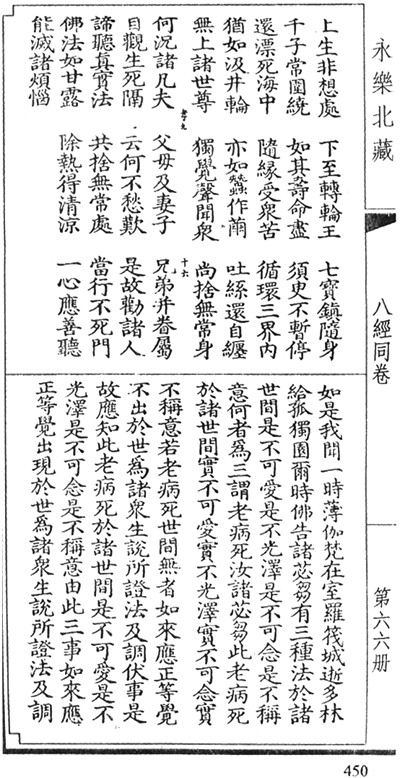 永樂北藏
八經同卷
第六六册
上生非想處 下至轉輪王 七寶鎮隨身
千子常圍繞 如其壽命盡 須臾不暫停
還漂死海中 隨緣受衆苦 循環三界內
猶如汲井輪 亦如蠶作繭 吐絲還自纏
無上諸世尊 獨覺聲聞衆 尚捨無常身
十六
何況諸凡夫 父母及妻子 兄弟并眷屬
目觀生死隔 云何不愁歎 是故勸諸人
諦聽真實法 共捨無常處 當行不死門
佛法如甘露 除熱得清涼 一心應善聽
能滅諸煩惱
如是我聞一時薄伽梵在室羅筏城逝多林
給孤獨園爾時佛告諸苾芻有三種法於諸
世間是不可愛是不光澤是不可念是不稱
意何者為三謂老病死汝諸苾芻此老病死
於諸世間實不可愛實不光澤實不可念實
不稱意若老病死世間無者如來應正等覺
不出於世為諸衆生說所證法及調伏事是
故應知此老病死於諸世間是不可愛是不
光澤是不可念是不稱意由此三事如來應
正等覺出現於世為諸衆生說所證法及調
450